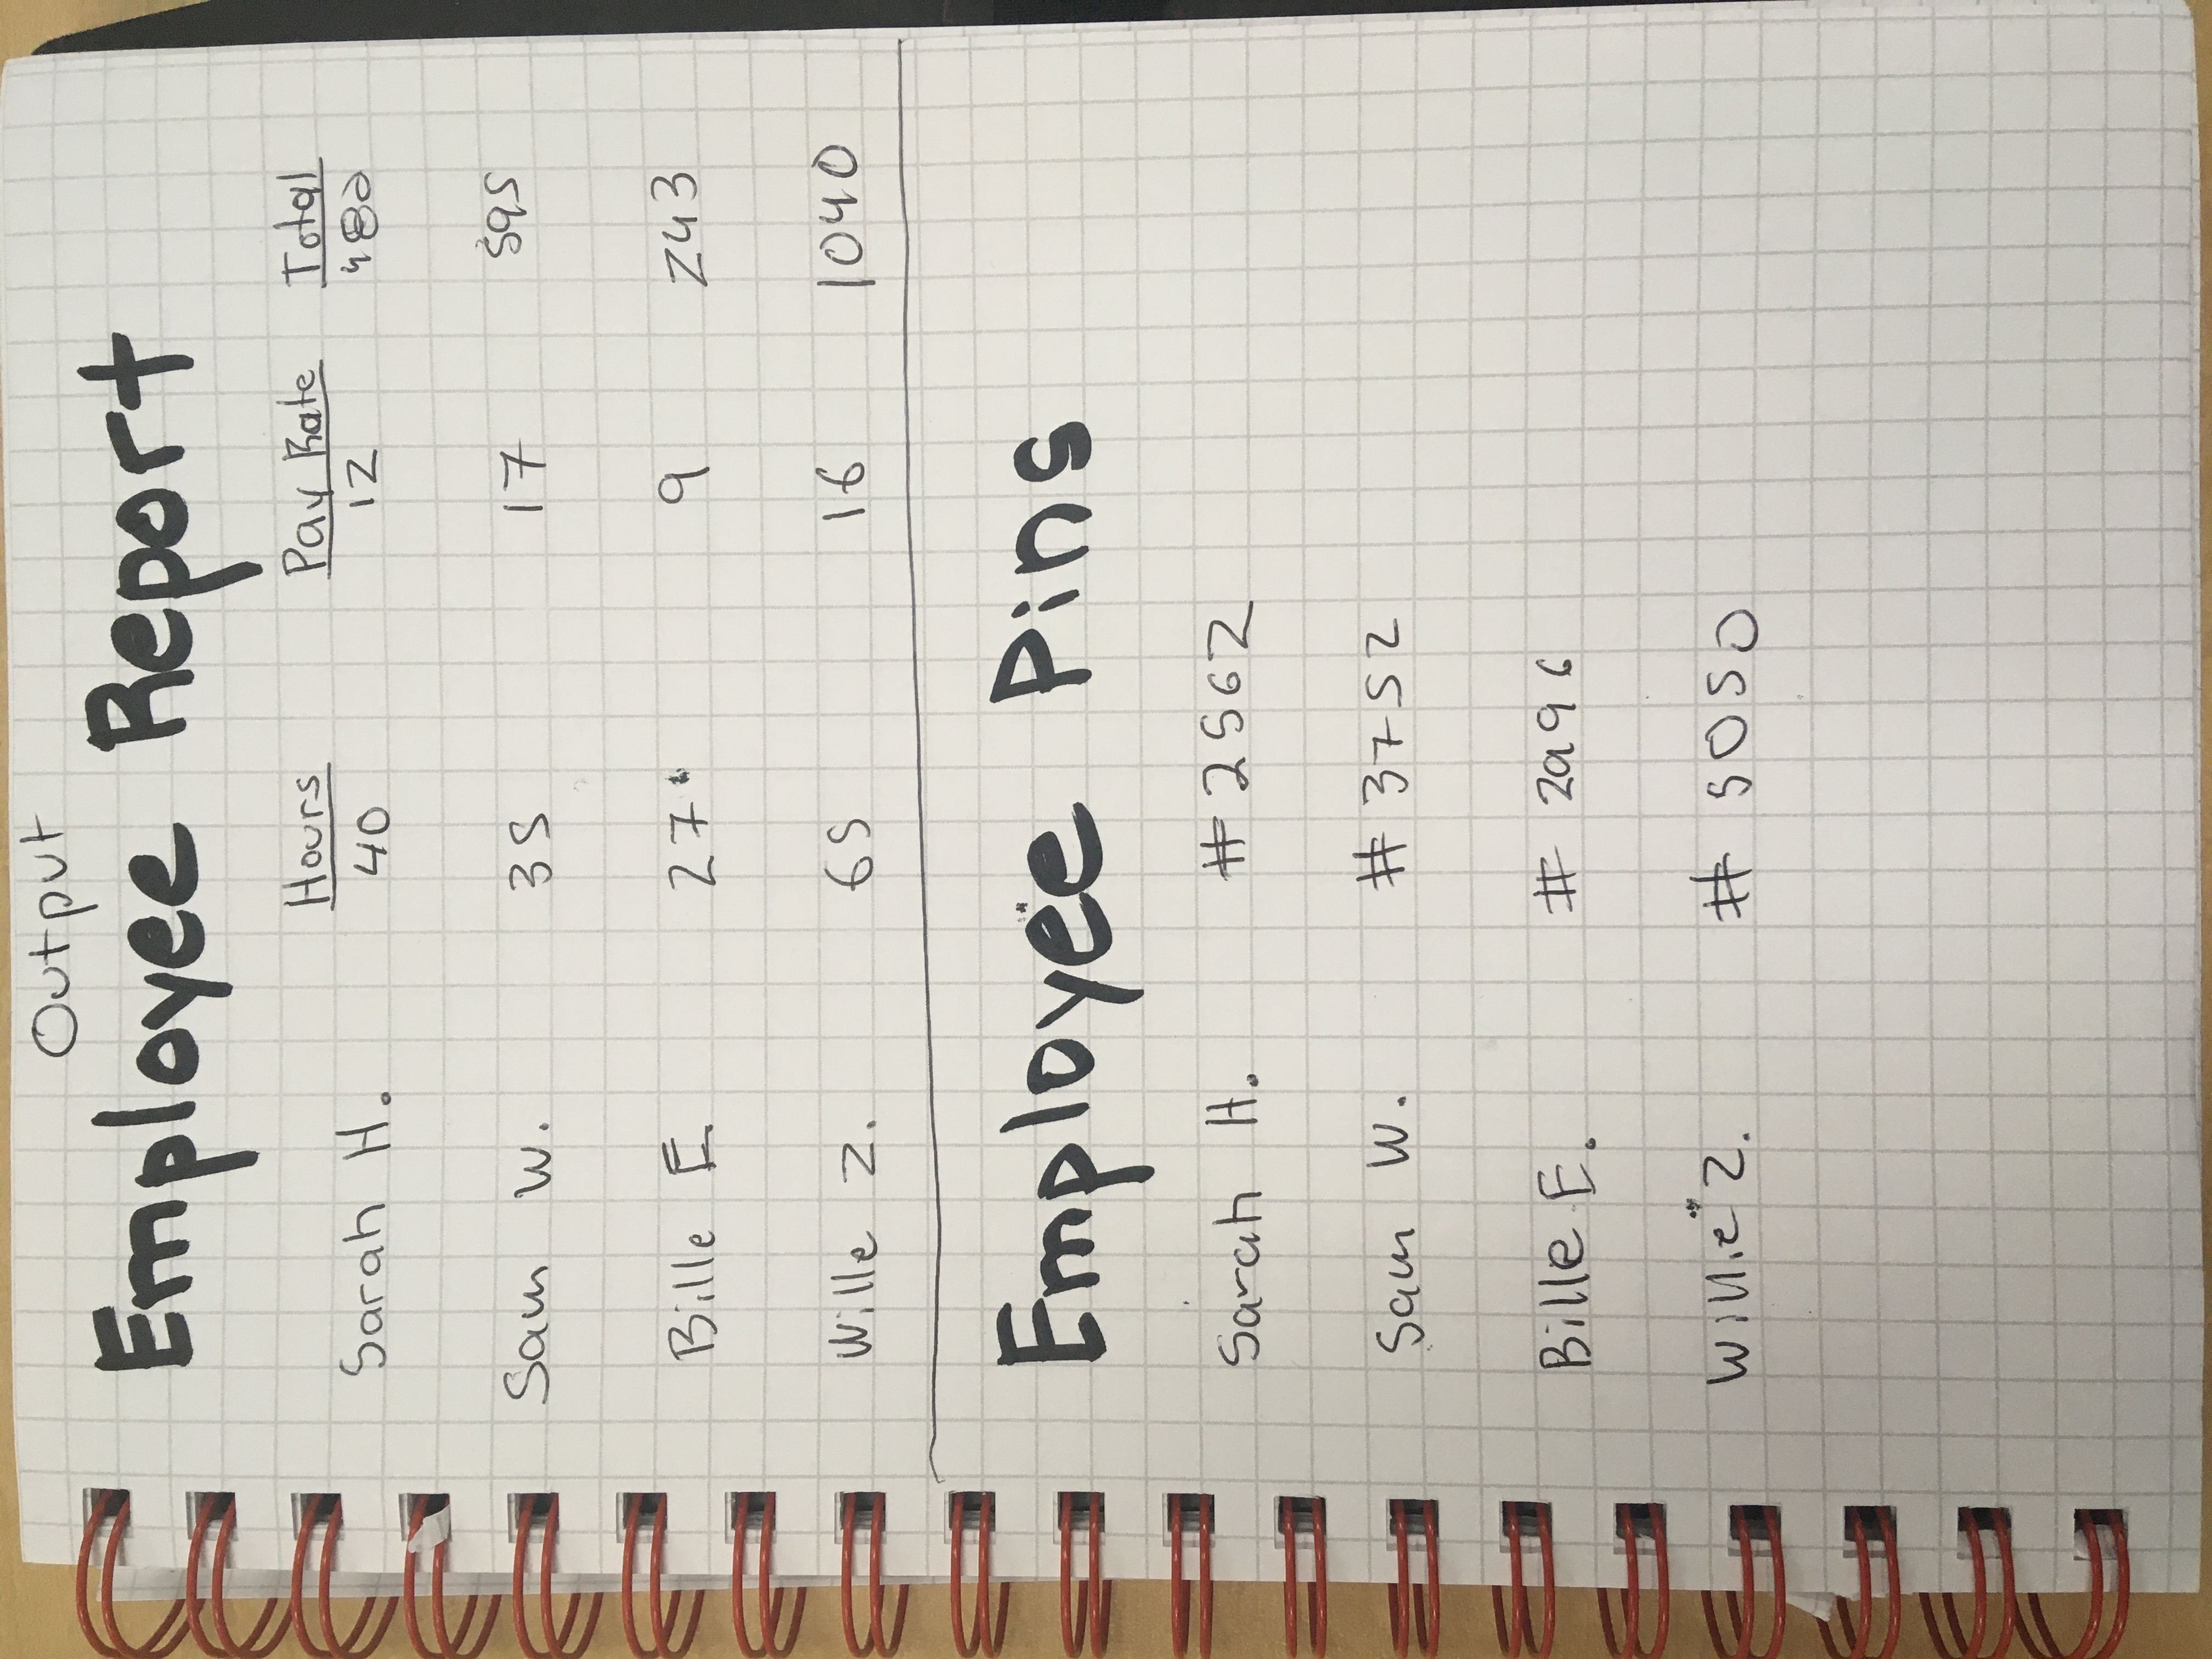 Output
Employee Report
Hours Pay Rate Total
Sarah H. 40 12 480
Sam W. 35 17 595
Bille E. 27 9 243
Wille Z. 65 16 1040
Employee Pins
Sarah H. # 2562
Sam W. # 3752
Bille E. # 2996
Willie Z. # 5050